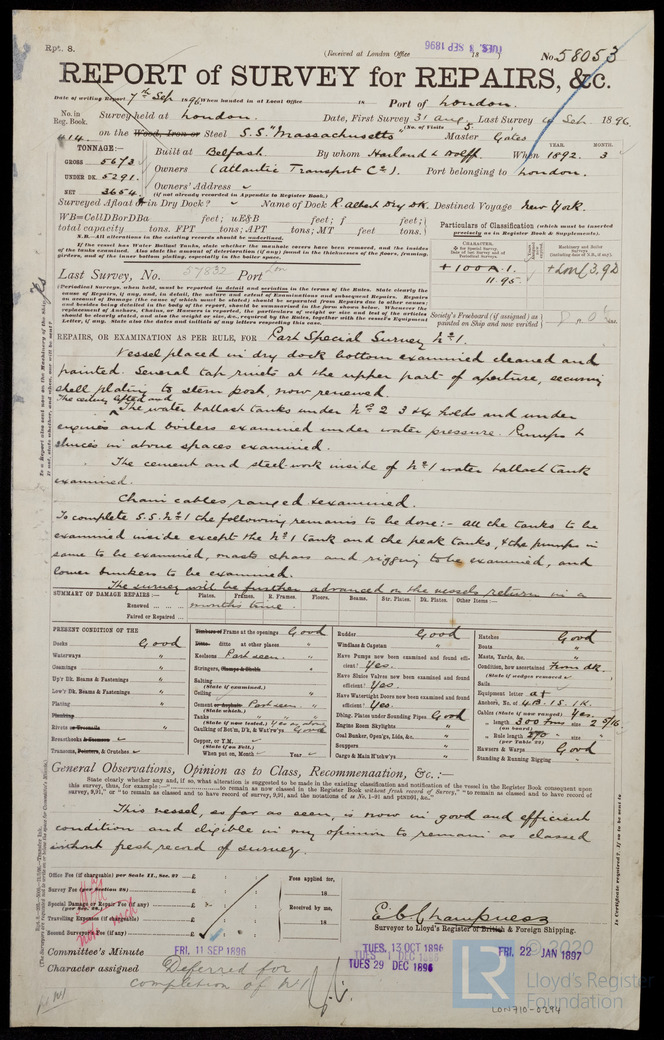 Rpt. 8.
(Received at London Office TUES. 8 SEP 1896 18 )
No. 58053
REPORT of SURVEY for REPAIRS, &c.
Date of writing Report 7th Sep 1896 When handed in at Local Office 18 Port of London.
No. in Reg. Book. Survey held at London Date, First Survey 31 Aug. Last Survey 4 Sep. 1896
(No. of Visits 3.)
414 on the Wood, Iron or Steel S.S. "Massachusetts" Master Gates
TONNAGE:—
GROSS 5673
UNDER DK. 5291.
NET 3654.
Built at Belfast By whom Harland & Wolff. When 1892. 3
YEAR. MONTH.
Owners (Atlantic Transport Co Ld. Port belonging to London.
Owners' Address
(if not already recorded in Appendix to Register Book.)
Surveyed Afloat or in Dry Dock? Name of Dock R. Albert Dry Dk. Destined Voyage New York.
WB=CellDBorDBa feet; uE&B feet; f feet;
total capacity tons. FPT tons; APT tons; MT feet tons.
N.B.—All alterations in the existing records should be underlined.
If the vessel has Water Ballast Tanks, state whether the manhole covers were removed, and the insides
of the tanks examined. Also state the amount of deterioration (if any) found in the thicknesses of the floors, framing,
girders, and of the inner bottom plating, especially in the boiler space.
Particulars of Classification (which must be inserted
precisely as in Register Book & Supplements).
CHARACTER,
Machinery and Boiler Surveys
+ 100 A.1.
11.95.
+ LMC 3,92
Last Survey, No. 57832 Port Lon
(Periodical Surveys, when held, must be reported in detail and seriatim in the terms of the Rules. State clearly the
Society's Freeboard (if assigned) as
painted on Ship and now verified
REPAIRS, OR EXAMINATION AS PER RULE, FOR Part Special Survey No 1.
Vessel placed in dry dock bottom examined cleaned and
painted. Several tap rivets at the upper part of aperture, securing
shell plating to stern post, now renewed.
The ceiling lifted and
The water ballast tanks under No 2 3 & 4 holds and under
engines and boilers examined under water pressure. Pumps &
sluices in above spaces examined.
The cement and steel work inside of No 1 water ballast tank
examined.
Chain cables ranged & examined.
To complete S.S. No 1 the following remains to be done:— all the tanks to be
examined inside except the No 1 tank and the peak tanks, & the pumps in
same to be examined, masts spars and rigging to be examined, and
lower bunkers to be examined.
The survey will be further advanced on the vessels return in a
months time.
SUMMARY OF DAMAGE REPAIRS:— Plates. Frames. R. Frames. Floors. Beams. Str. Plates. Dk. Plates. Other Items:—
Renewed
Faired or Repaired
PRESENT CONDITION OF THE
Decks Good
Waterways "
Coamings "
Up'r Dk. Beams & Fastenings "
Low'r Dk. Beams & Fastenings "
Plating "
Planking
Rivets or Treenails "
Breasthooks & Knees "
Transoms, Pointers, & Crutches
Timbers or Frame at the openings Good
Ditto ditto at other places "
Keelsons Part seen.
Stringers, Clamps & Shelfs "
Salting
(State if examined.)
Ceiling
Cement or Asphalt Part seen.
(State which.)
Tanks
(State if now tested) Yes as above
Caulking of Bot'm, D'k, & Wat'rw'ys Good
Copper, or Y.M.
(State if on Felt.)
When put on, Month Year
Rudder Good
Windlass & Capstan "
Have Pumps now been examined and found efficient? Yes.
Have Sluice Valves now been examined and found efficient? Yes.
Have Watertight Doors now been examined and found efficient? Yes
Dblng. Plates under Sounding Pipes Good
Engine Room Skylights "
Coal Bunker, Open'gs, Lids, &c. "
Scuppers "
Cargo & Main H'tchw'ys "
Hatches Good
Boats "
Masts, Yards, &c. "
Condition, how ascertained From dk.
(State if wedges removed)
Sails
Equipment letter a+
Anchors, No. of 4B. 1S. 1K.
Cables (State if now ranged) Yes.
" length 300 fms size 2 5/16
(on board)
" Rule length size
(per Table 22)
Hawsers & Warps Good
Standing & Running Rigging "
General Observations, Opinion as to Class, Recommendation, &c.:—
State clearly whether any, if so, what alteration is suggested to be made in the existing classification and notification of the vessel in the Register Book consequent upon
this survey, thus, for example:—" to remain as classed in the Register Book without fresh record of Survey," "to remain as classed and to have record of
survey, 9,91," or "to remain as classed and to have record of survey, 9,91, and the notations of ss No. 1-91 and ptND91, &c."
This vessel, as far as seen, is now in good and efficient
condition and eligible in my opinion to remain as classed
without fresh record of survey.
Office Fee (if chargeable) per Scale II., Sec. 27 £
Survey Fee (per Section 28) £
Special Damage or Repair Fee (if any) £
(per Sec. 28.)
Travelling Expenses (if chargeable) £
Second Surveyor's Fee (if any) £
Fees applied for,
18
Received by me,
18
E.C. Champness
Surveyor to Lloyd's Register of British & Foreign Shipping.
Committee's Minute FRI. 11 SEP 1896
TUES. 13 OCT 1896
TUES 1 DEC 1896
TUES 29 DEC 1896
FRI. 22 JAN 1897
Character assigned Deferred for
completion of No 1
© 2020
LR
Lloyd's Register
Foundation
LON710-0294